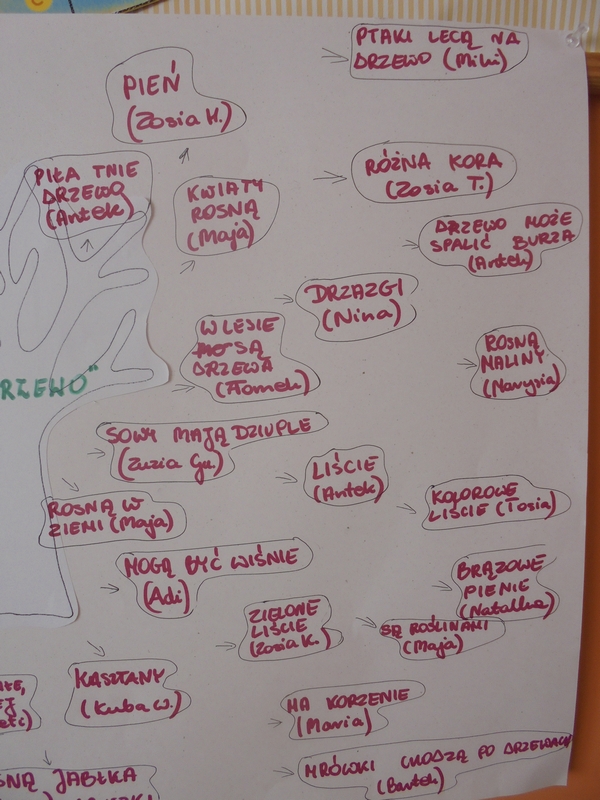 PTAKI LECĄ NA
DRZEWO (Miki)
PIEŃ
(Zosia H.)
PIŁA TNIE
DRZEWO
(Antek)
KWIATY
ROSNĄ
(Maja)
RÓŻNA KORA
(Zosia T.)
DRZEWO MOŻE
SPALIĆ BURZA
(Antek)
DRZAZGI
(Nina)
W LESIE
SĄ
DRZEWA
(Tomek)
ROSNĄ
MALINY
(Narysia)
RZEWO"
SOWY MAJĄ DZIUPLE
(Zuzia Gu.)
LIŚCIE
(Antek)
KOLOROWE
LIŚCIE (Tosia)
ROSNĄ W
ZIEMI (Maja)
MOGĄ BYĆ WIŚNIE
(Adi)
BRĄZOWE
PIENIE
(Natalka)
ZIELONE
LIŚCIE
(Zosia K.)
SĄ ROŚLINAMI
(Maja)
KASZTANY
(Kuba W.)
MA KORZENIE
(Maria)
SNĄ JABŁKA
MRÓWKI CHODZĄ PO DRZEWACH
(Bartek)